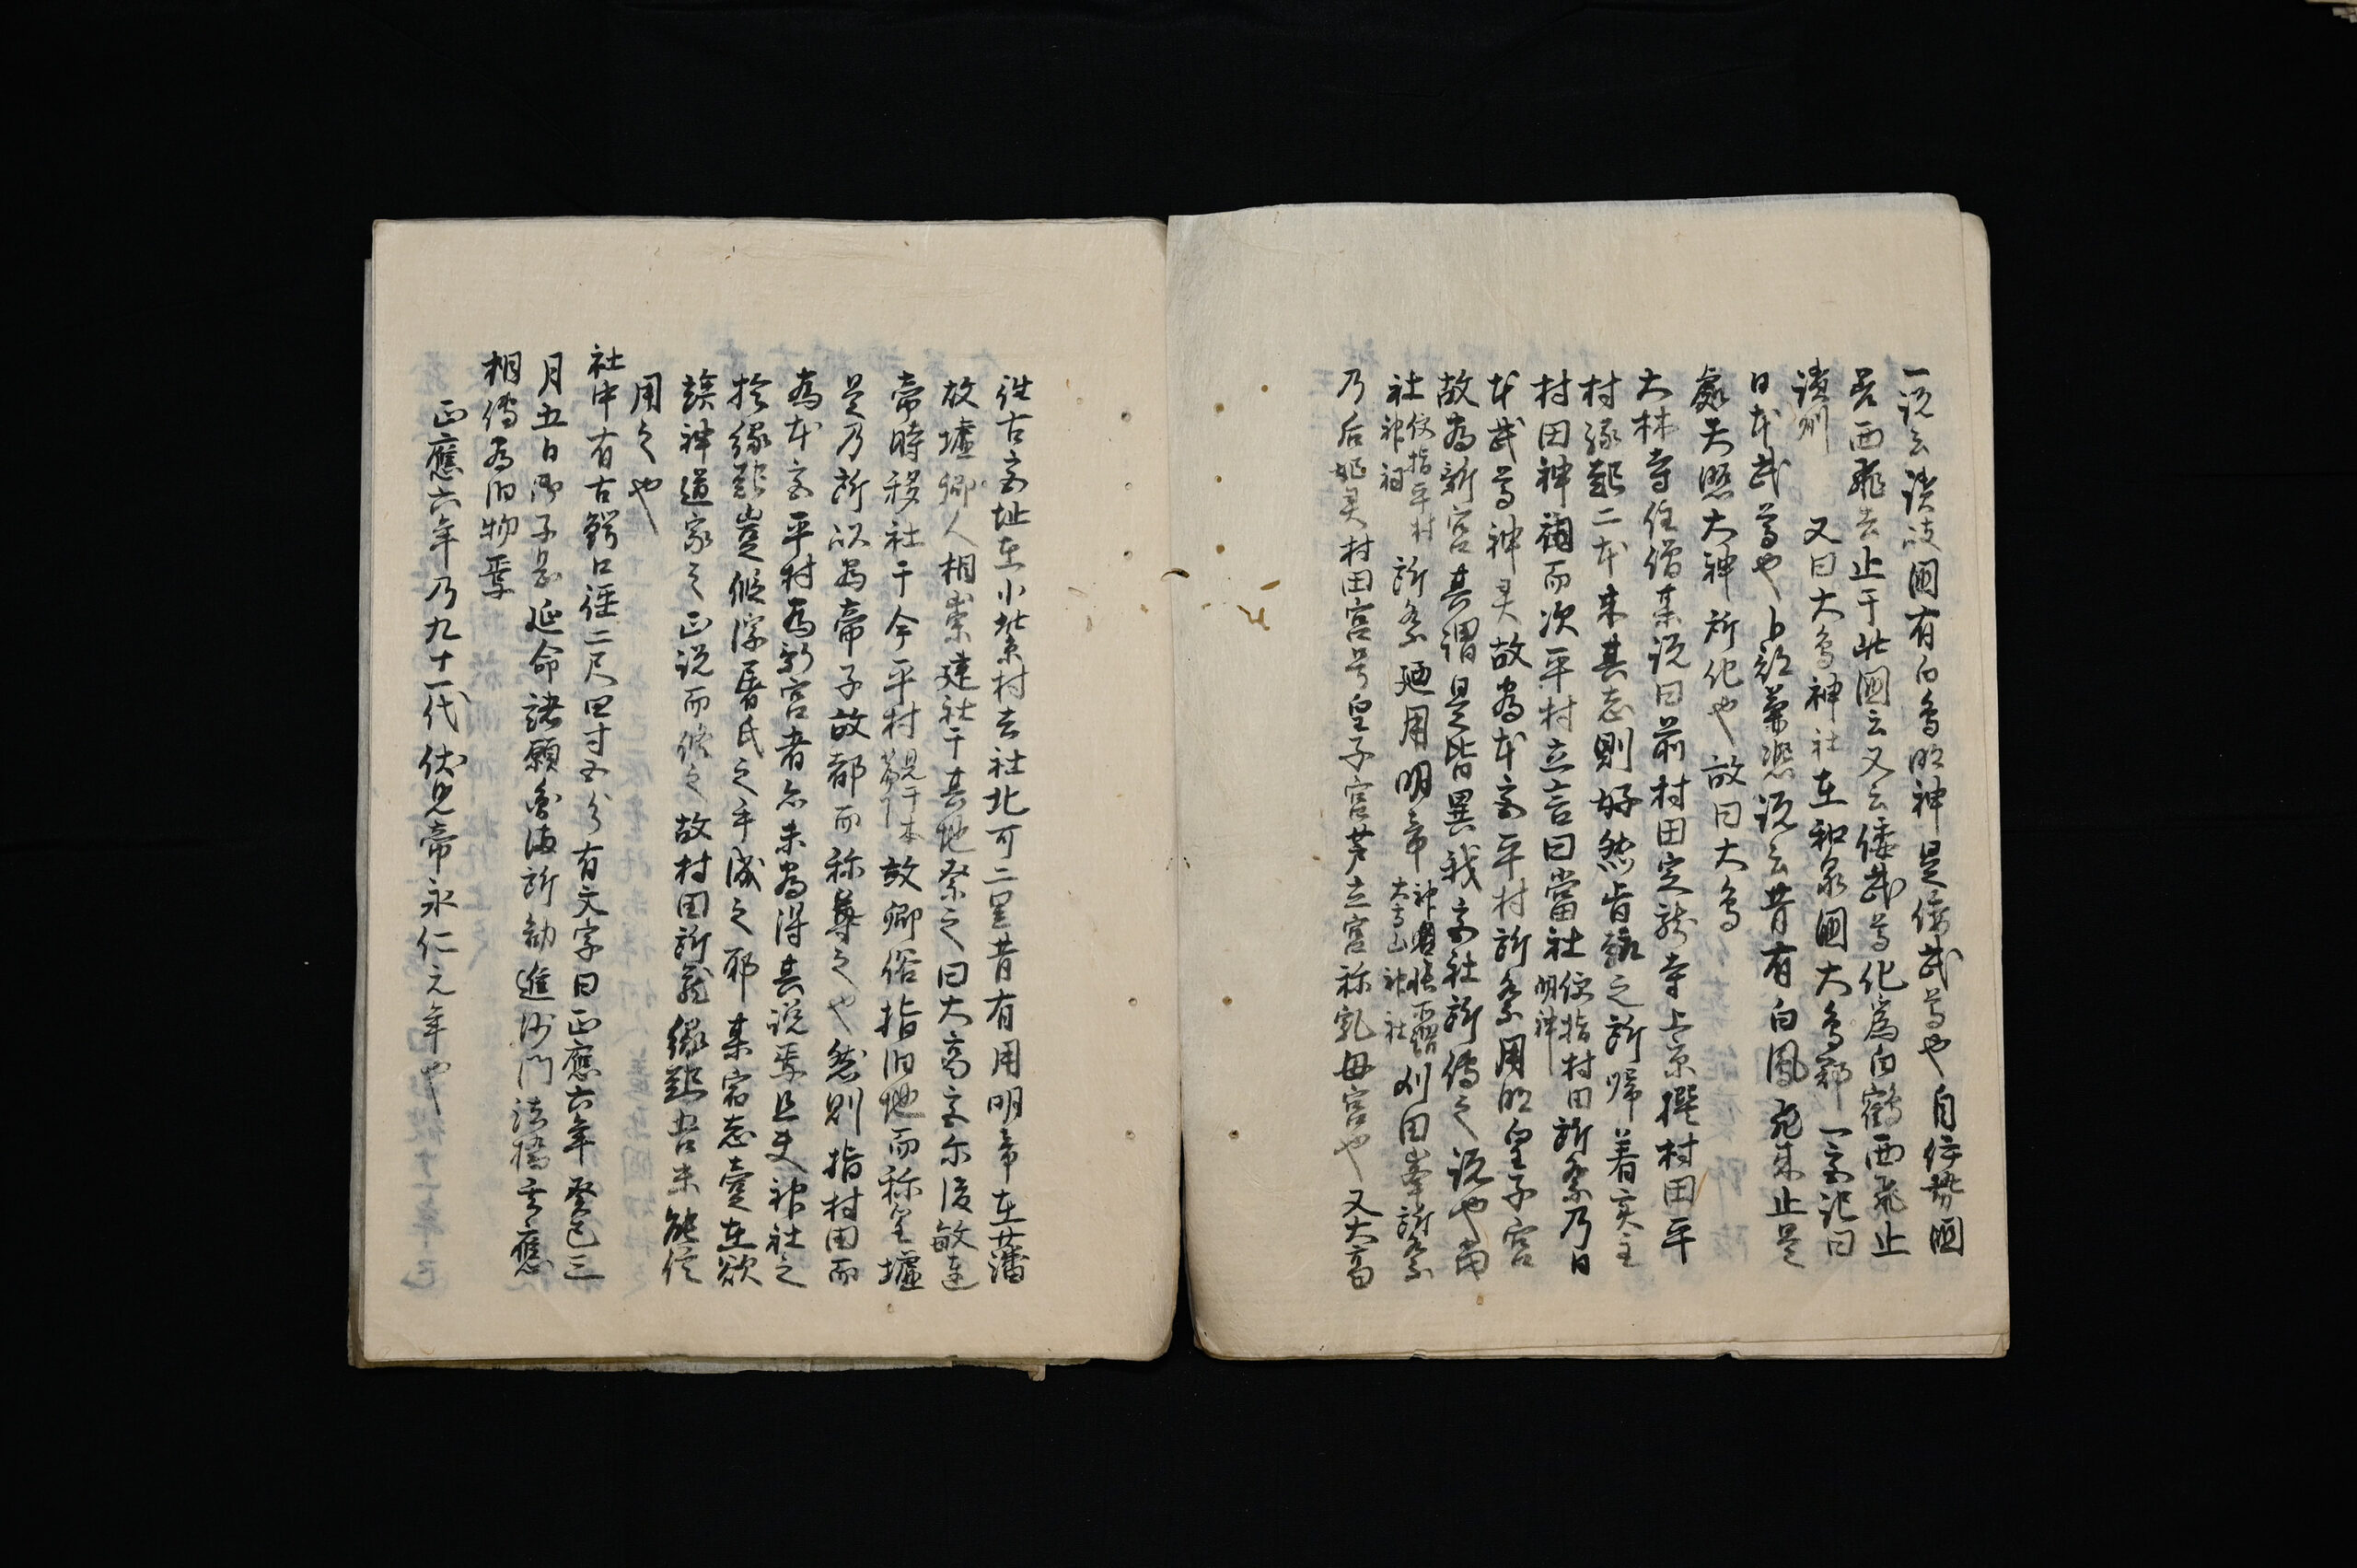 一説云讃岐國有白鳥明神是倭武尊也自伊勢國
西飛去止于此國云又云倭武尊化為白鶴西飛止
讃州　又曰大鳥神社在和泉國大鳥郡一宮記曰
日本武尊也卜部兼熙説云昔有白鳳飛来止是
處天照大神所化也故曰大鳥
大林寺住僧某説曰前村田定龍寺上京撰村田平
村縁起二本来其志則好然皆之所帰着実主
村田神祠而次平村立言曰當社便指村田明神所祭乃日
本武尊神灵故為本宮平村所祭用明皇子宮
故為新宮其謂是皆異我宮社所傳之説也當
社便指平村神祠所祭廼用明帝神大高山神社刈田峯所祭
乃后妃灵村田宮号皇子宮芦立宮称乳母宮也又大高
往古宮址在小紫村去社北可二里昔有用明帝在藩
故墟郷人相崇建社于其地祭之曰大高宮尔後敏達
帝時移社于今平村故郷俗指旧地而称里墟
是乃所以為帝子故都而称尊之也然則指村田而
為本宮平村為新宮者亦未為得其説焉且夫神社之
於縁起豈假浮屠氏之手成之耶某宕志壹在欲
神道家之正説而修之故村田所蔵縁起吾未能信
用之也
社中有古鰐口徑二尺四寸五分有文字曰正應六年癸巳三
月五日御子息延命諸願所勧進沙門法橋
相傳為旧物焉
正應六年乃九十一代伏見帝永仁元年也